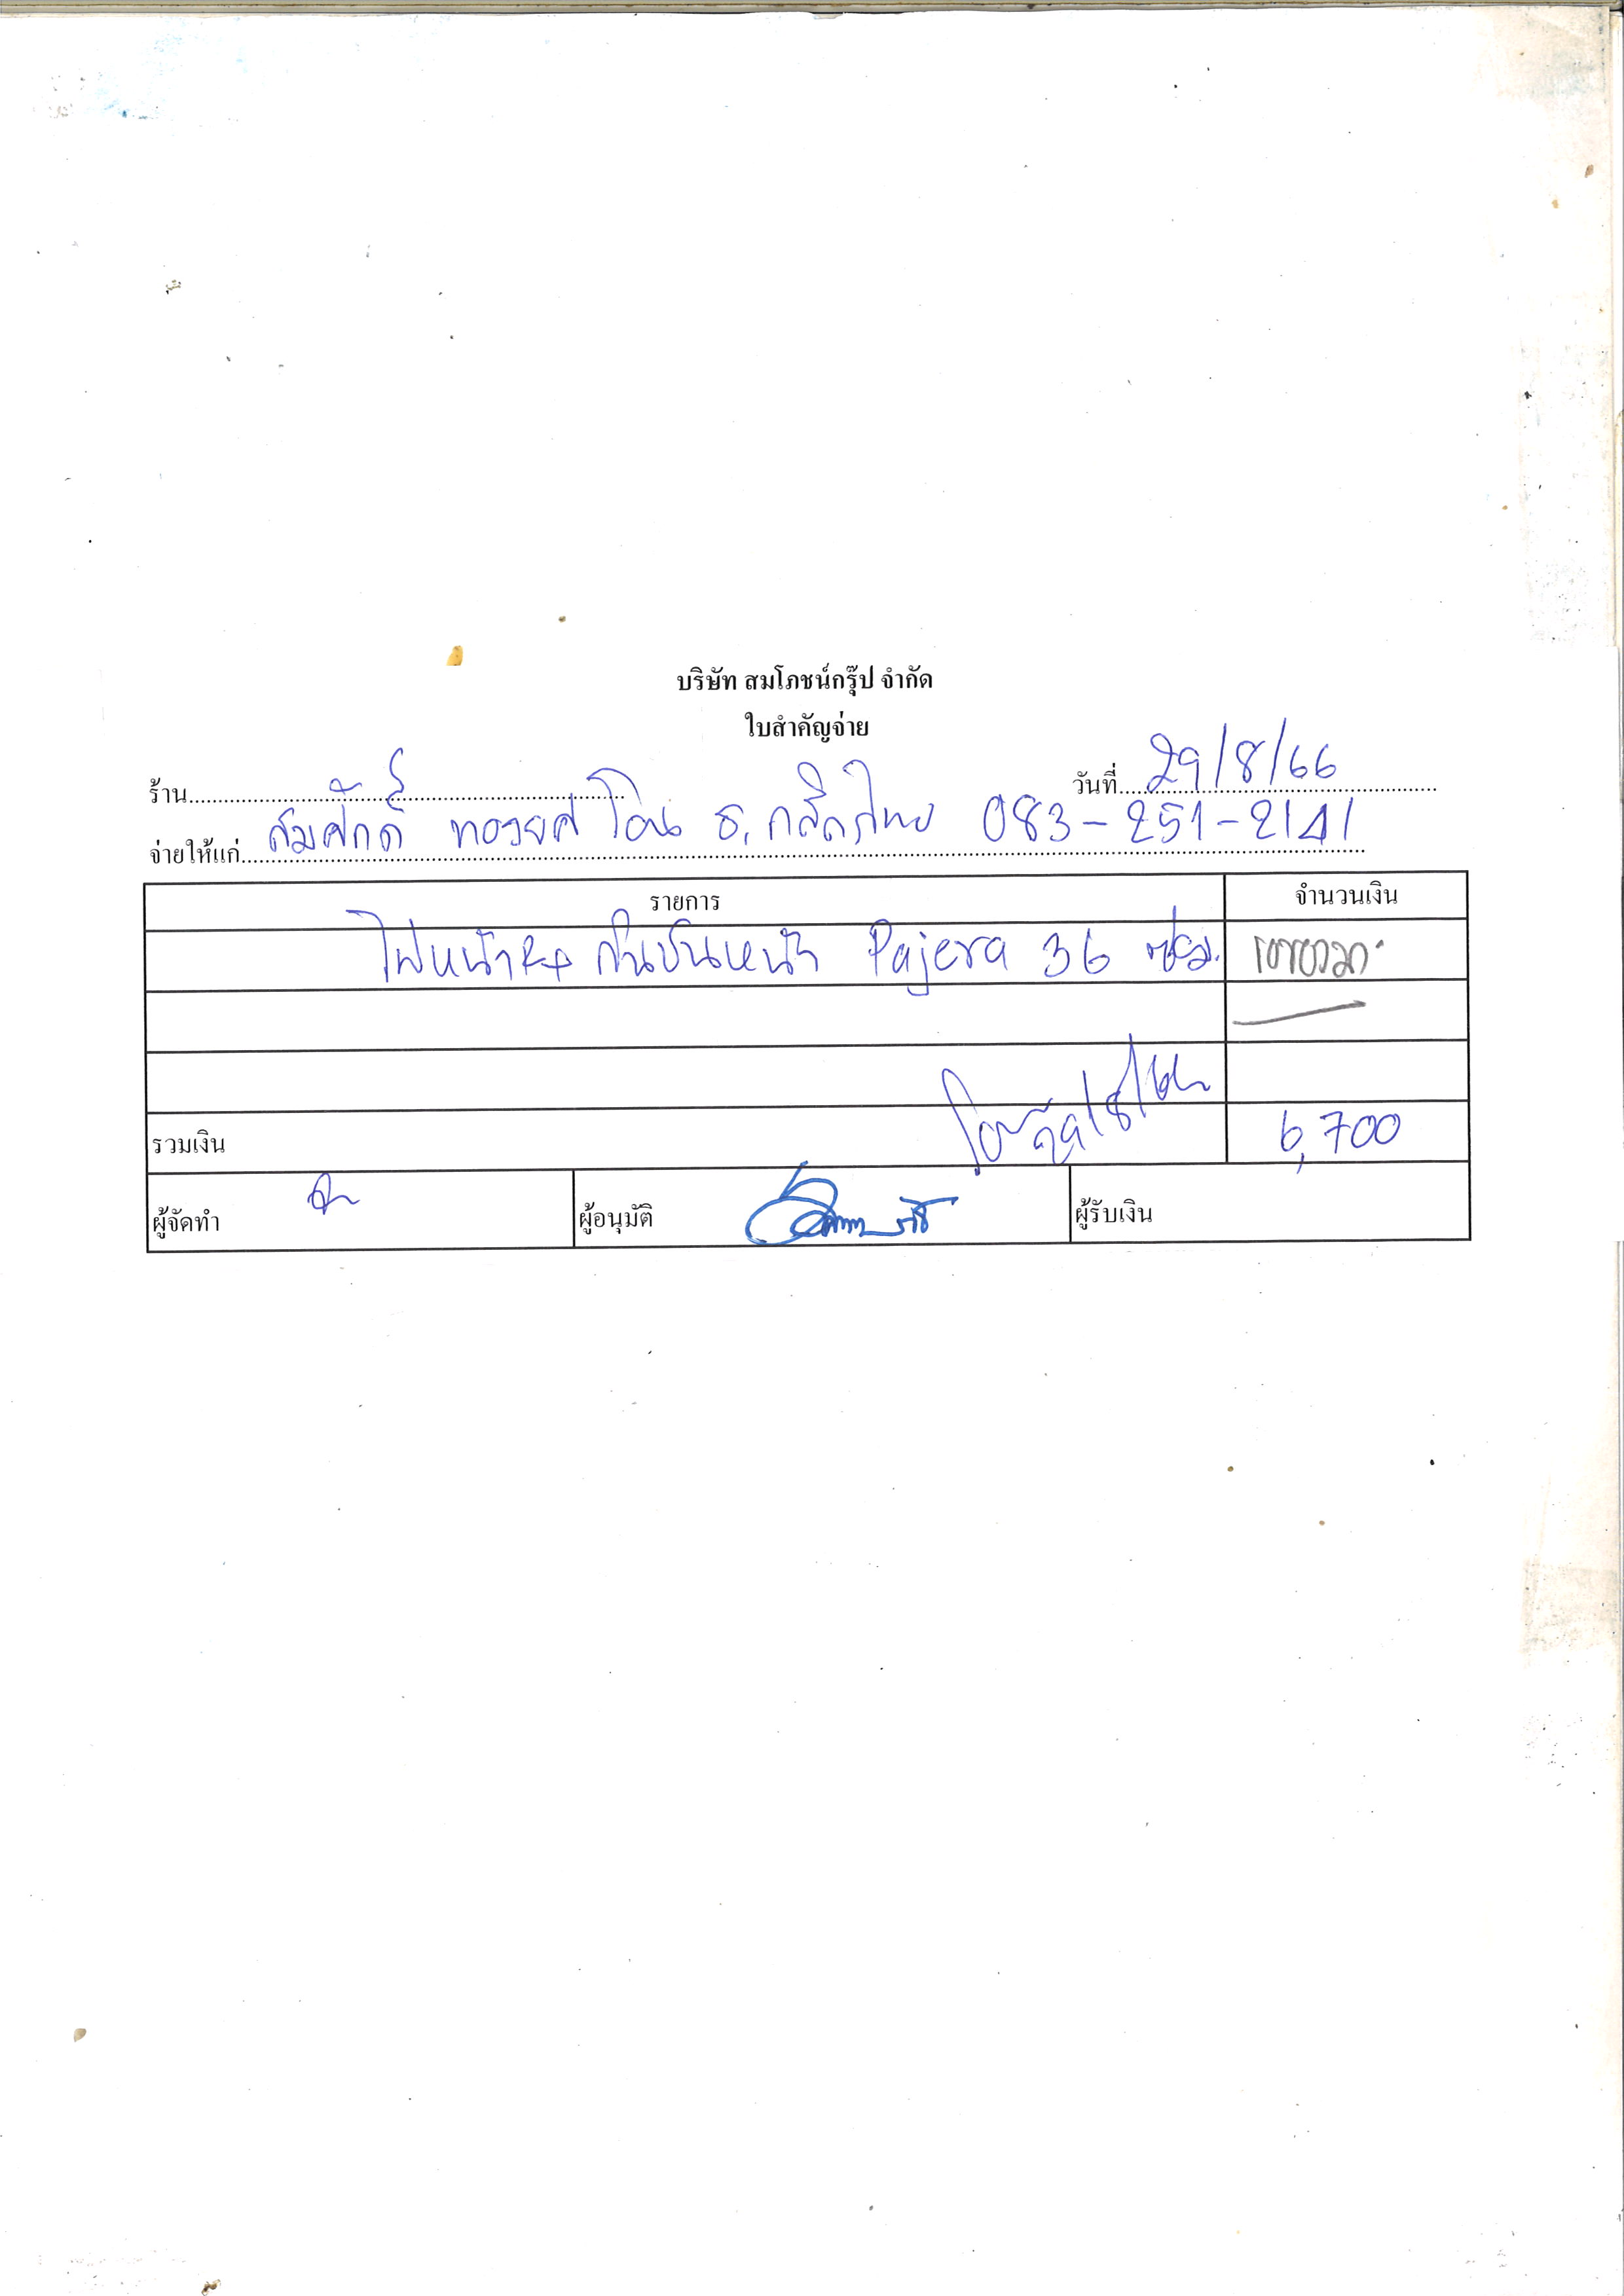 บริษัท สมโภชน์กรุ๊ป จำกัด
ใบสำคัญจ่าย
ร้าน
วันที่ 29/8/66
จ่ายให้แก่ สมศักดิ์ ทองยศ โอน ธ.กสิกรไทย 083-251-2141
รายการ จำนวนเงิน
ไฟหน้าRเ กันชนหน้า Pajera 36
รวมเงิน 6,700
โอน 29/8/66
ผู้จัดทำ ผู้อนุมัติ ผู้รับเงิน